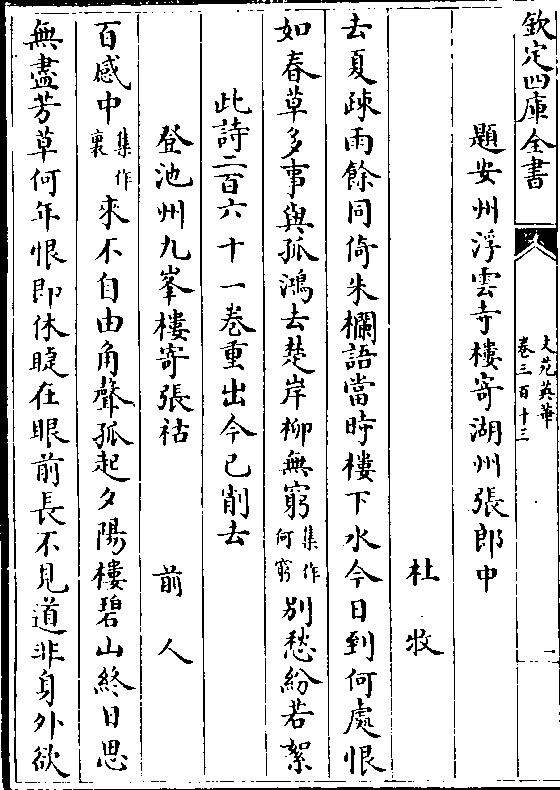 欽定四庫全書
文苑英華
卷三百十三
二
題安州浮雲寺樓寄湖州張郎中
杜牧
去夏疎雨餘同倚朱欄語當時樓下水今日到何處恨
如春草多事與孤鴻去楚岸柳無窮集作何窮別愁紛若絮
此詩二百六十一卷重出今已削去
登池州九峯樓寄張祜
前人
百感中集作衷來不自由角聲孤起夕陽樓碧山終日思
無盡芳草何年恨即休睫在眼前長不見道非身外欲